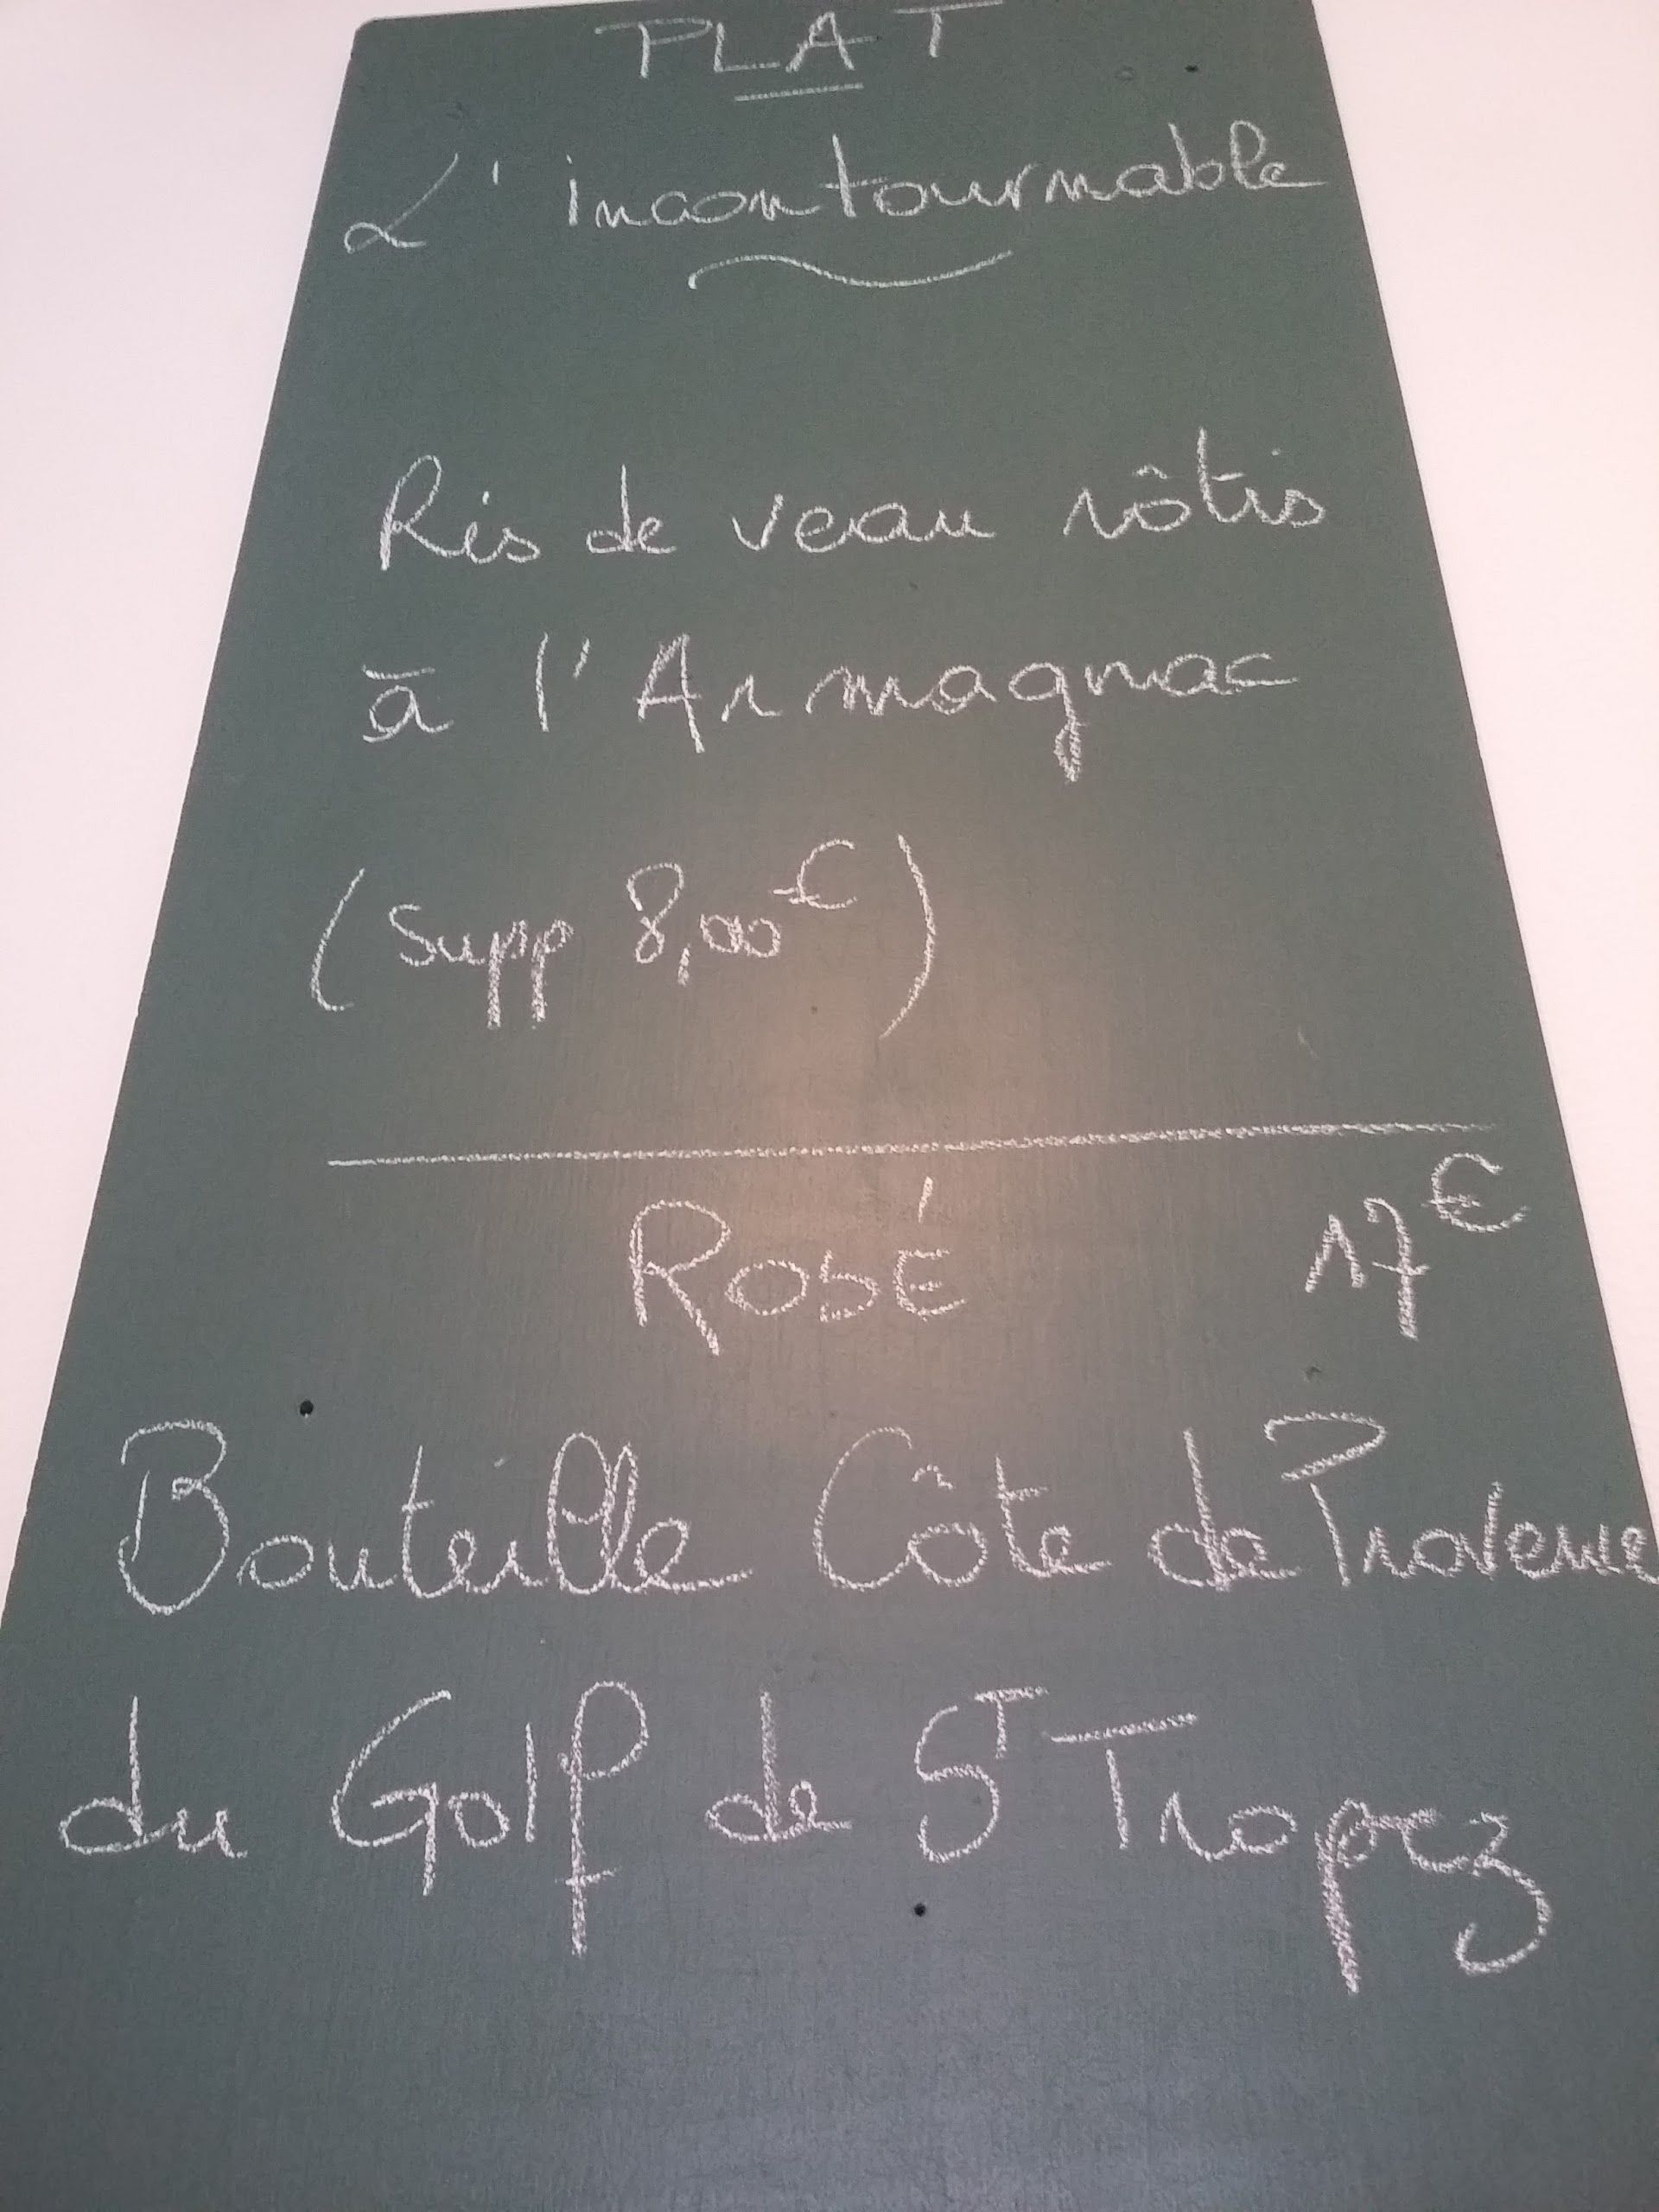 PLAT
L'incontournable
Ris de veau rôtis
à l'Armagnac
(Supp 8,00€)
ROSÉ 17€
Bouteille Côte de Provence
du Golf de ST Tropez